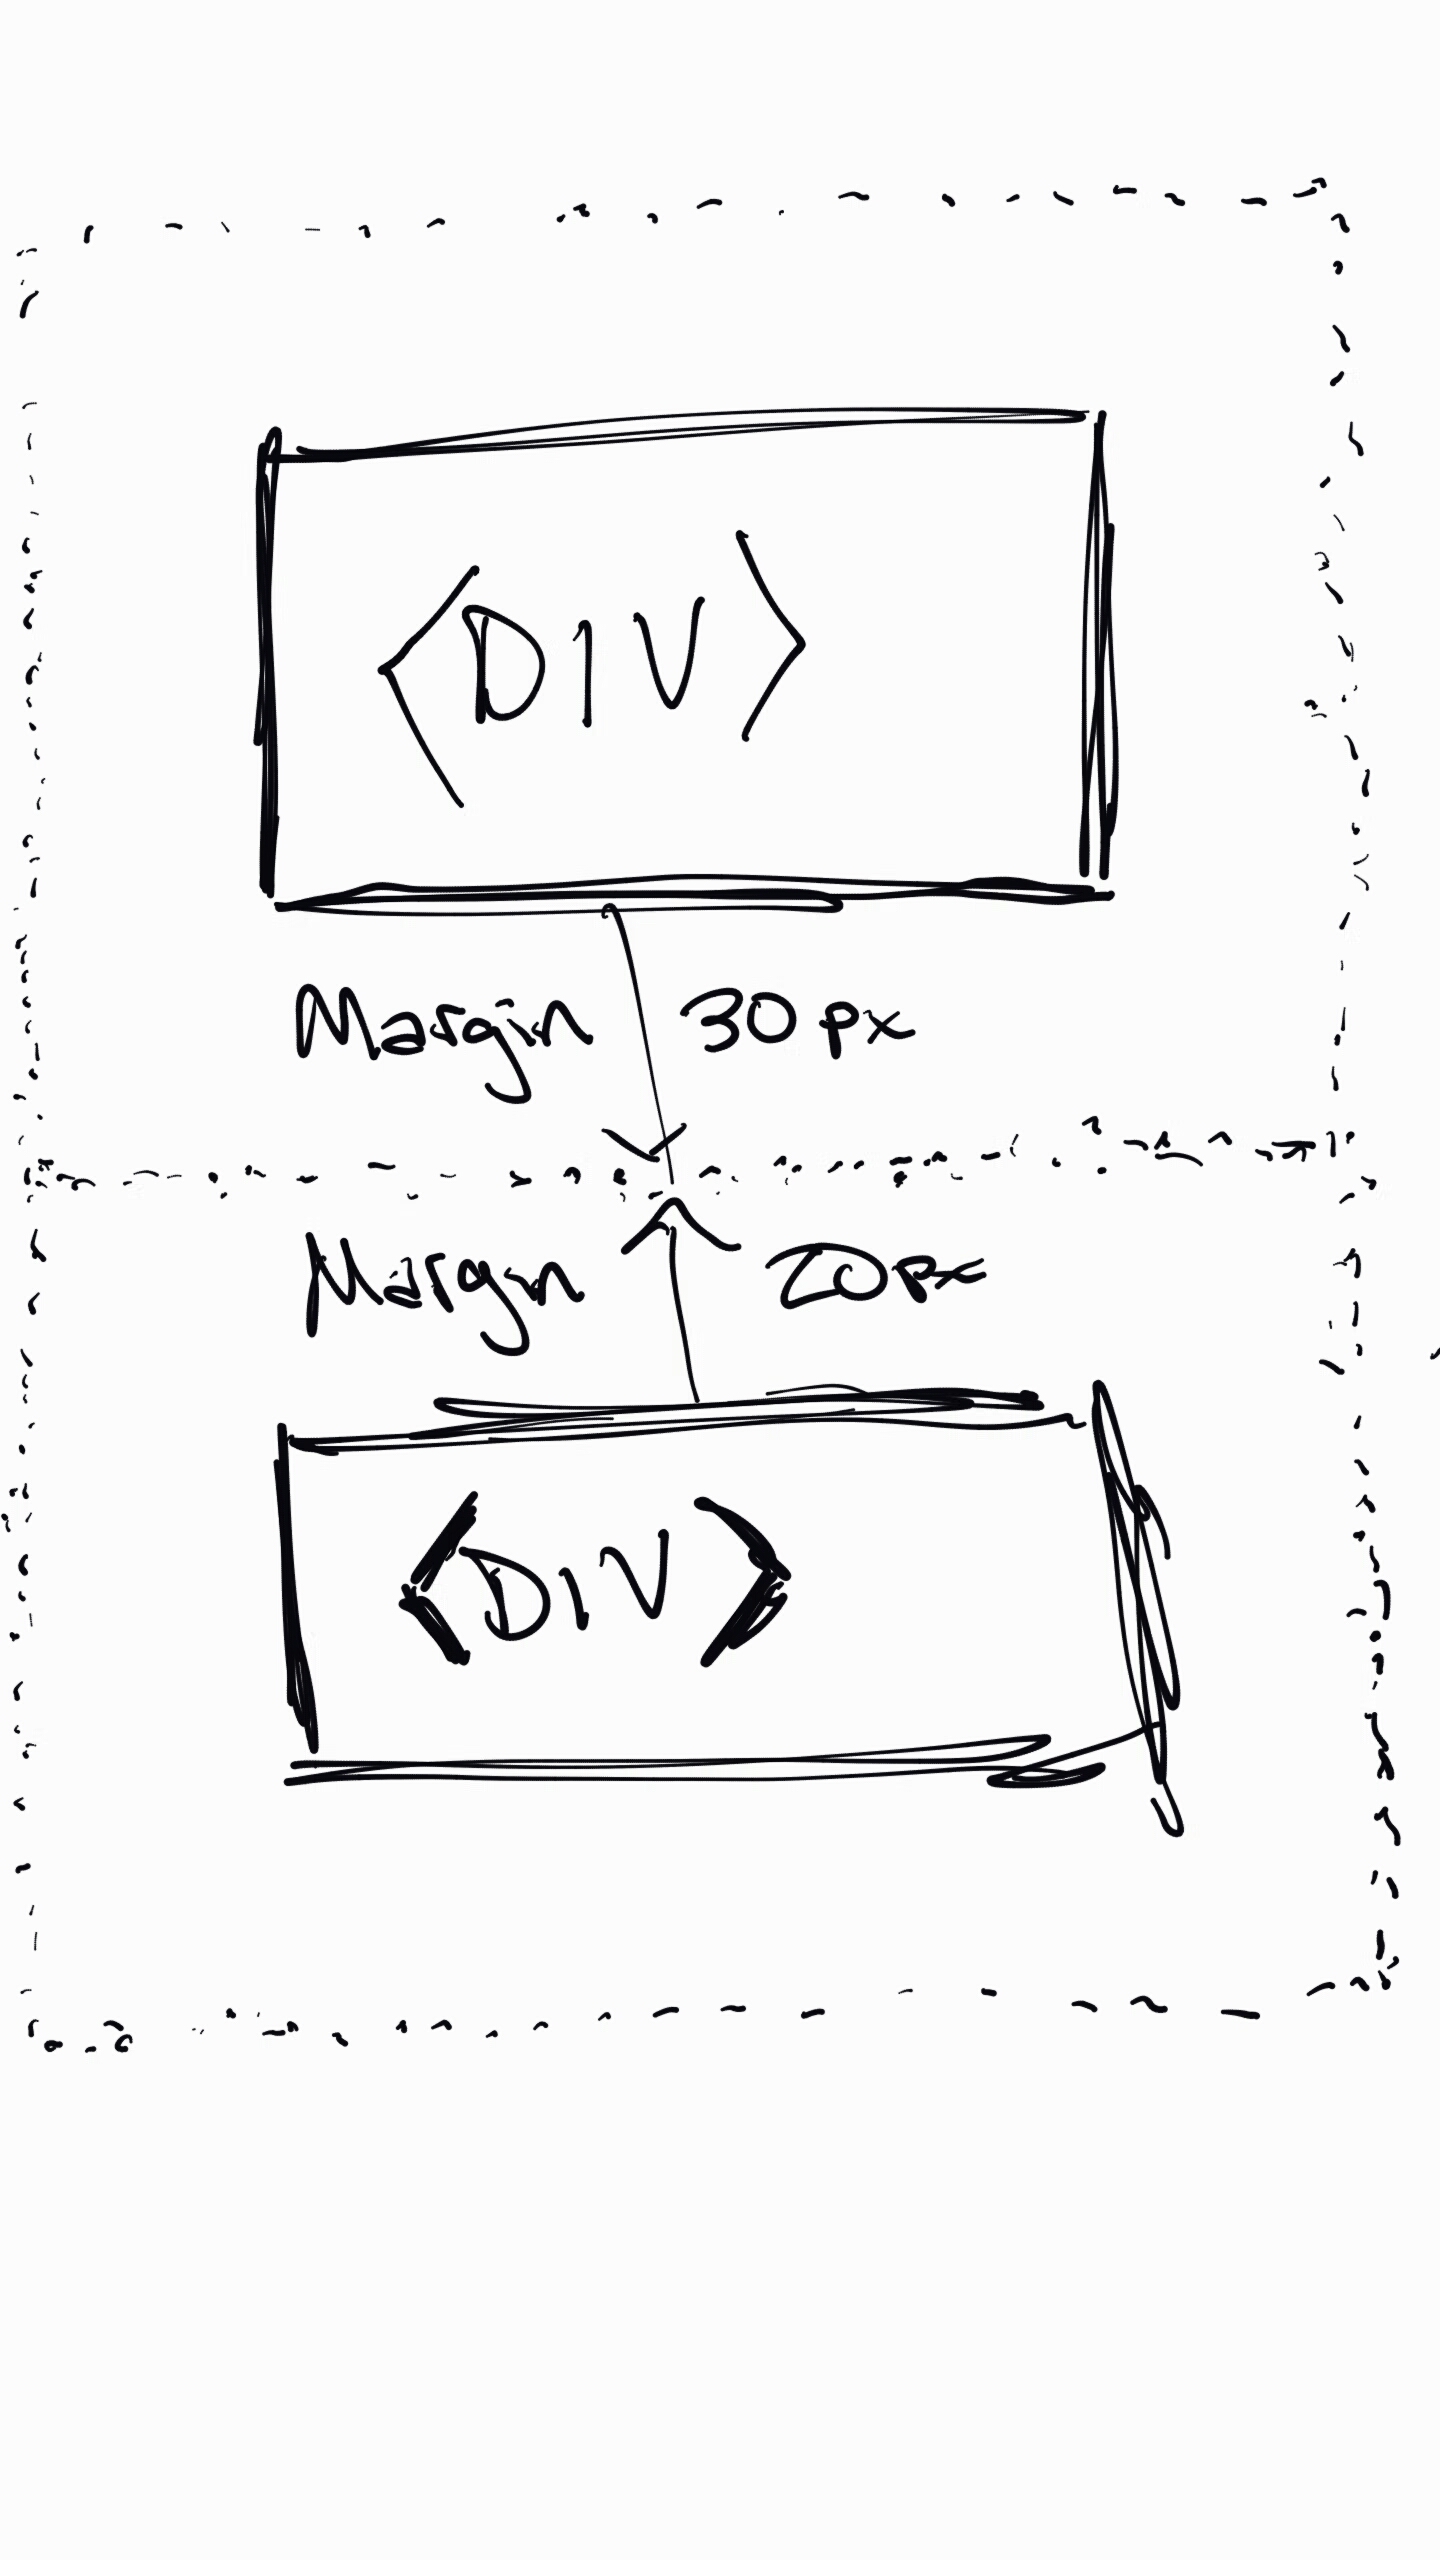 <DIV>
Margin 30px
Margin 20px
<DIV>